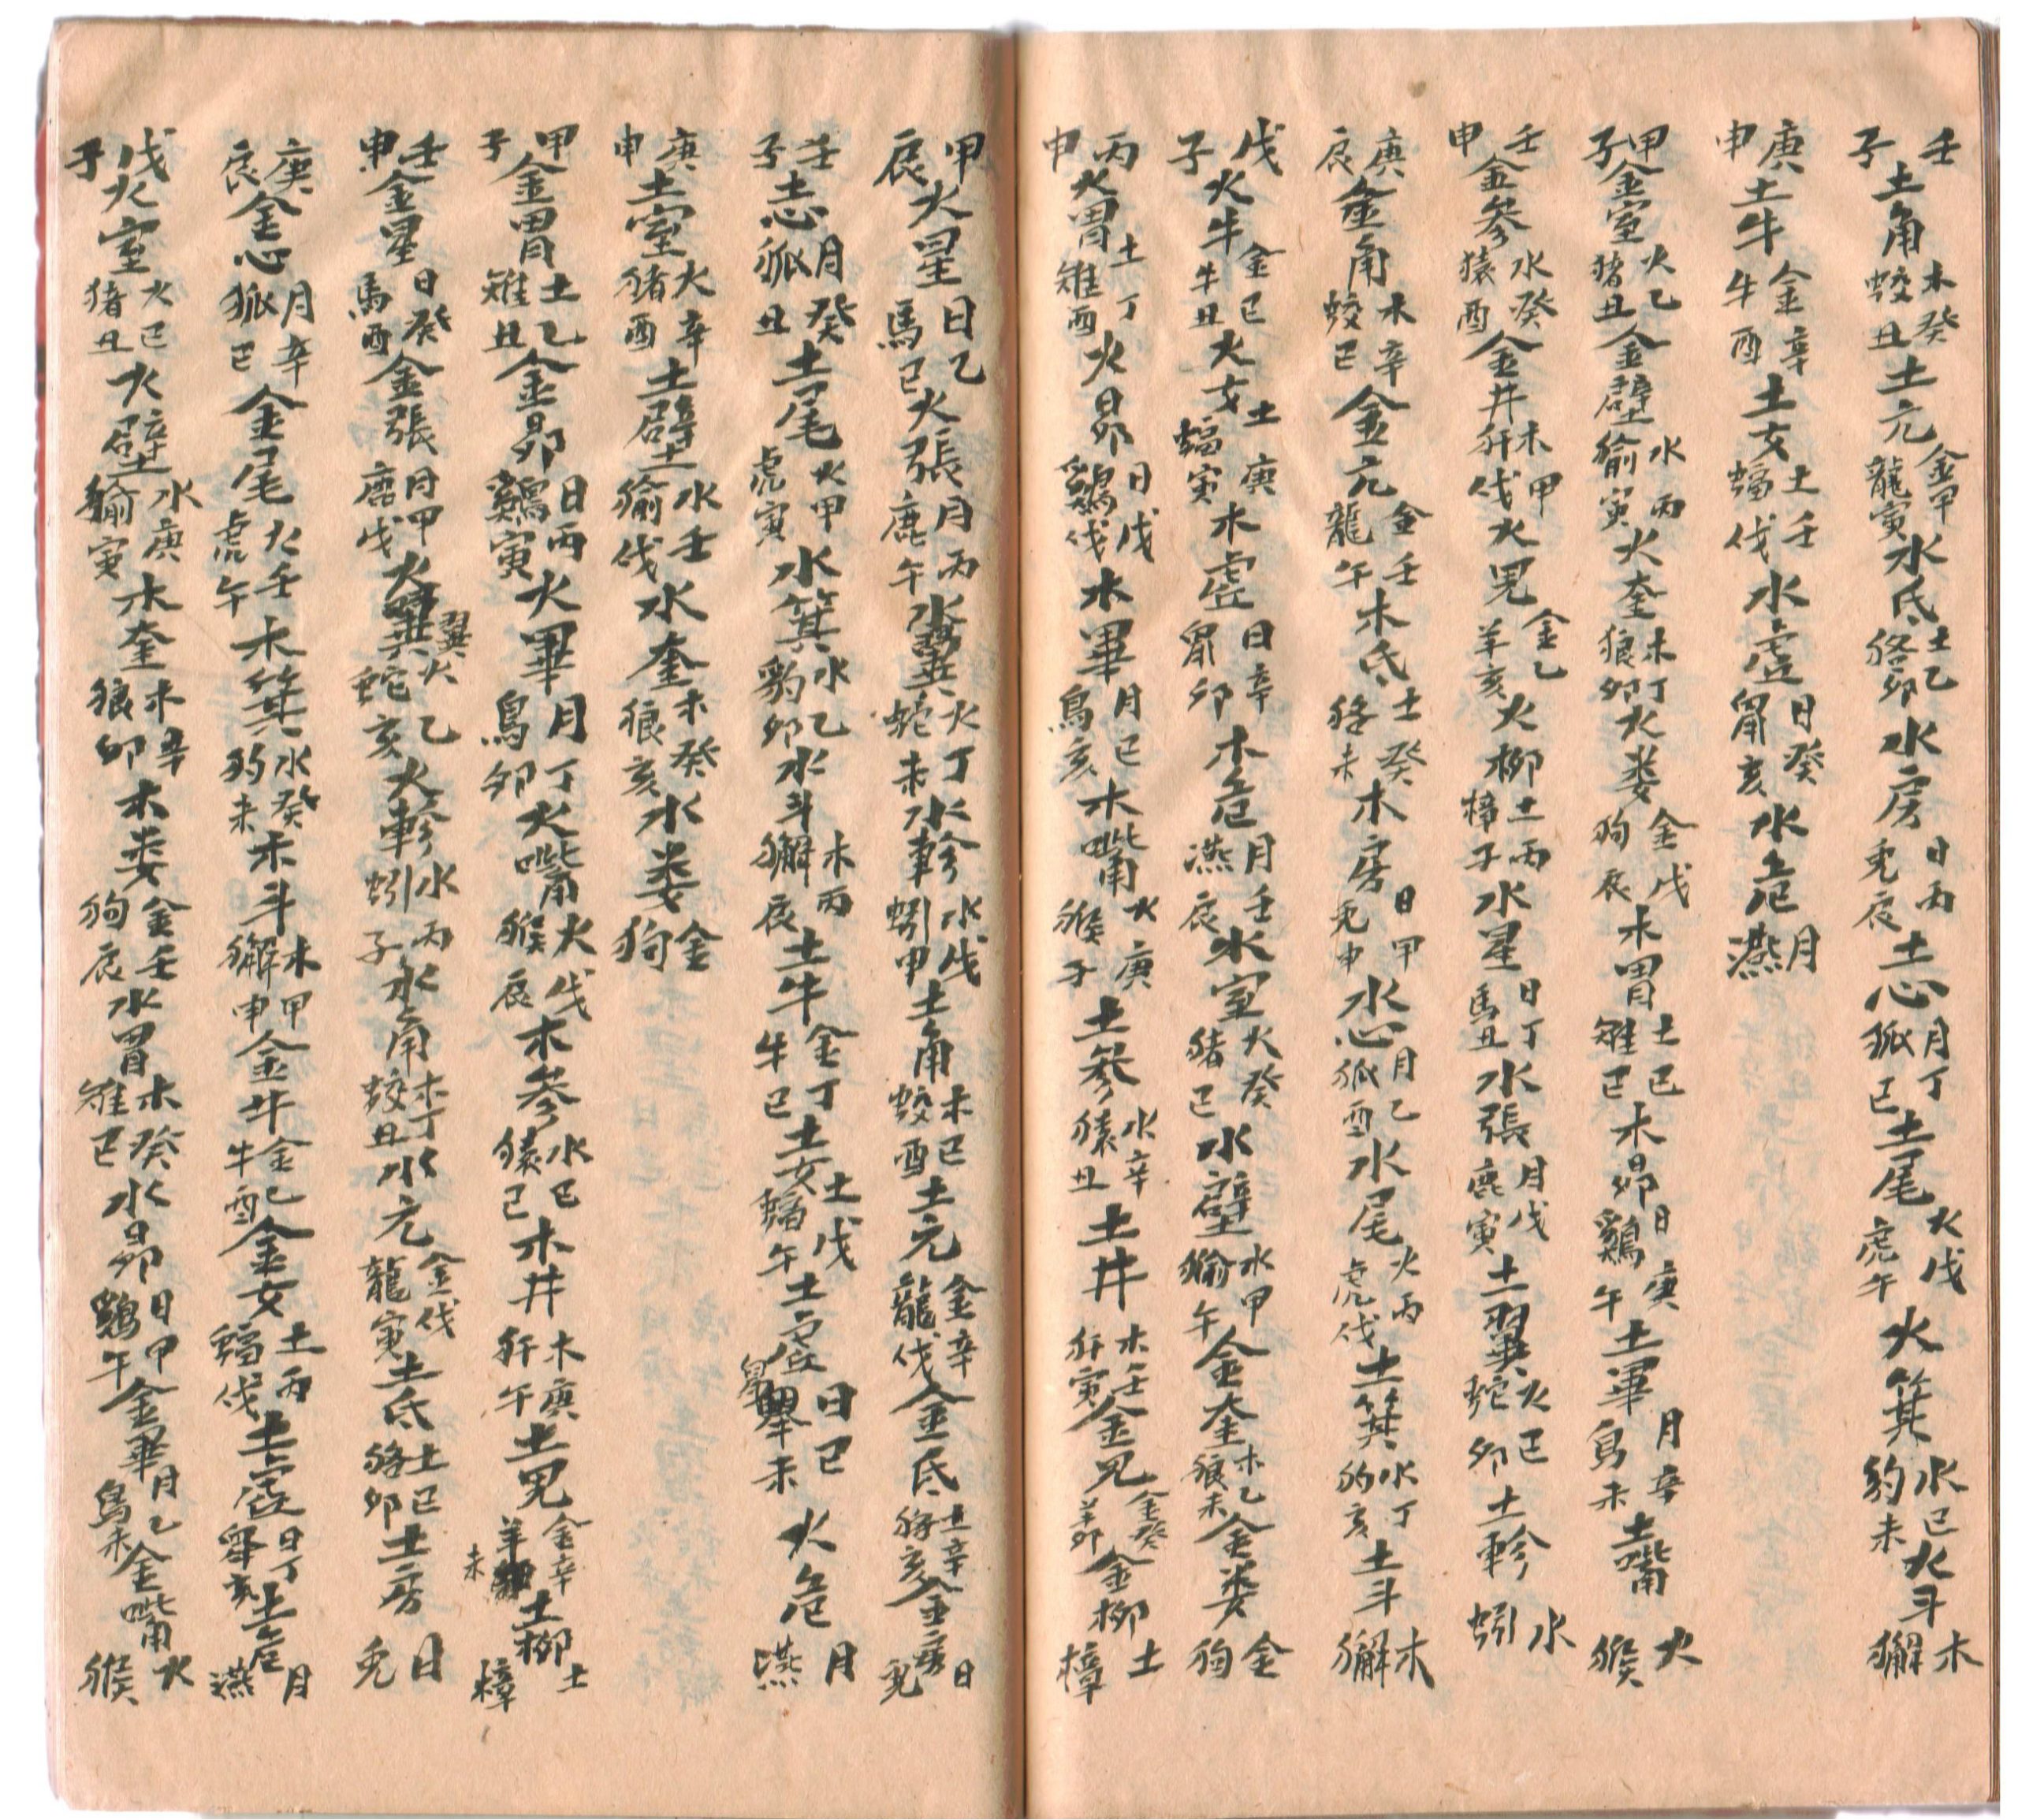 壬子土角木蛟癸丑土元金龍甲寅水氐土貉乙卯水房日兎丙辰土心月狐丁巳土尾火虎戊午火箕水豹己未火斗木獬
庚申土牛金牛辛酉土女土蝠壬伐水虚日鼠癸亥水危月燕
甲子金室火猪乙丑金壁水㺄丙寅火奎木狼丁卯火娄金狗戊辰木胃土雉己巳木昴日鷄庚午土畢月烏辛未土嘴火猴
壬申金參水猿癸酉金井木犴甲伐火鬼金羊乙亥火柳土樟丙子水星日馬丁丑水張月鹿戊寅土翼火蛇己卯土軫水蚓
庚辰金角木蛟辛巳金元金龍壬午木氐土貉癸未木房日兎甲申水心月狐乙酉水尾火虎丙伐土箕水豹丁亥土斗木獬
戊子火牛金牛己丑火女土蝠庚寅木虚日鼠辛卯木危月燕壬辰水室火猪癸巳水壁水㺄甲午金奎木狼乙未金娄金狗
丙申火胃土雉丁酉火昴日鷄戊伐木畢月烏己亥木嘴火猴庚子土參水猿辛丑土井木犴壬寅金鬼金羊癸卯金柳土樟
甲辰火星日馬乙巳火張月鹿丙午水翼火蛇丁未水軫水蚓戊申土角木蛟己酉土元金龍辛伐金氐土貉辛亥金房日兎
壬子土心月狐癸丑土尾火虎甲寅水箕水豹乙卯水斗木獬丙辰土牛金牛丁巳土女土蝠戊午土虚日鼠己未火危月燕
庚申土室火猪辛酉土壁水㺄壬伐水奎木狼癸亥水娄金狗
甲子金胃土雉乙丑金昴日鷄丙寅火畢月烏丁卯火嘴火猴戊辰木參水猿己巳木井木犴庚午土鬼金羊辛未土柳土樟
壬申金星日馬癸酉金張月鹿甲戊火翼火蛇乙亥火軫水蚓丙子水角木蛟丁丑水元金龍伐寅土氐土貉己卯土房日兎
庚辰金心月狐辛巳金尾火虎壬午木箕水豹癸未木斗木獬甲申金牛金牛乙酉金女土蝠丙伐土虚日鼠丁亥土危月燕
戊子火室火猪己丑火壁水㺄庚寅木奎木狼辛卯木娄金狗壬辰水胃木雉癸巳水昴日鷄甲午金畢月烏乙未金嘴火猴